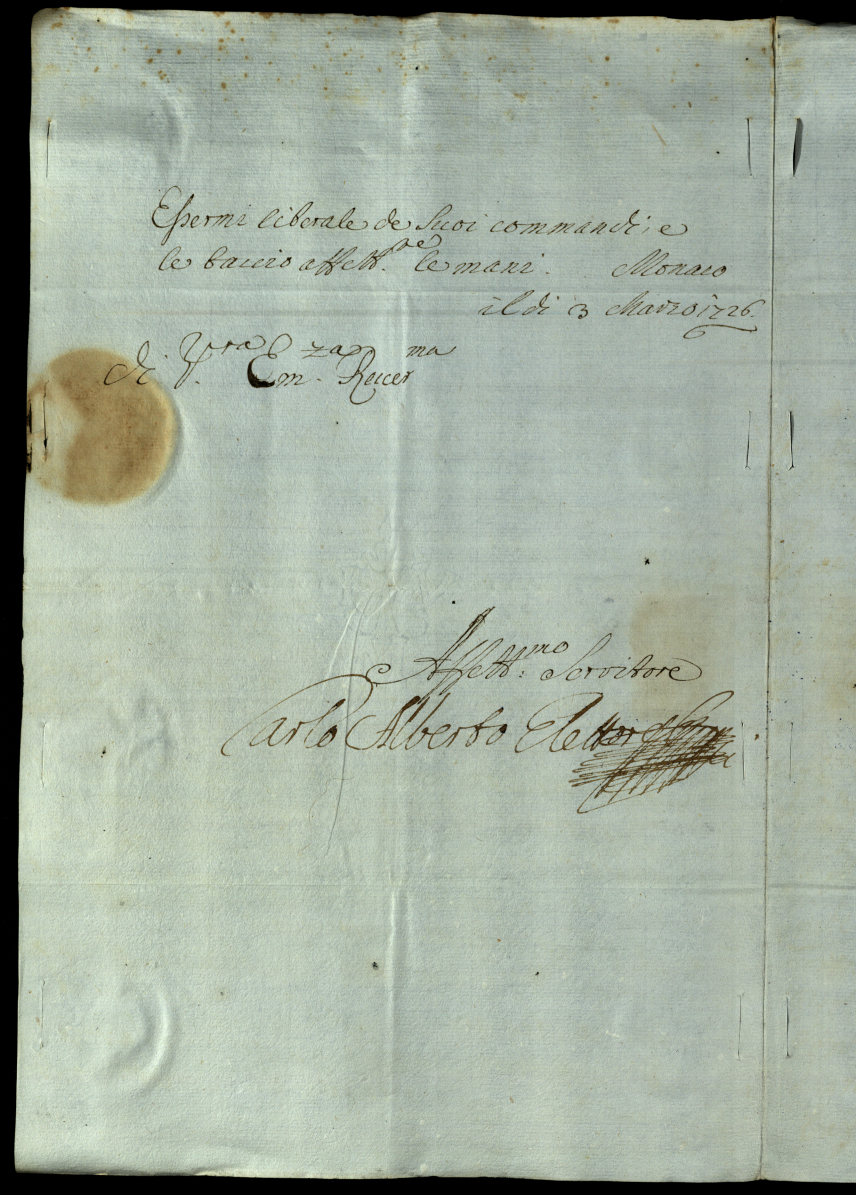 Essermi liberale de Suoi commandi, e
le baccio affett.te le mani. Monaco
il di 3 Marzo 1726.
di V.ra Em.za Rever.ma
Affett.mo Servitore
Carlo Alberto Elettor